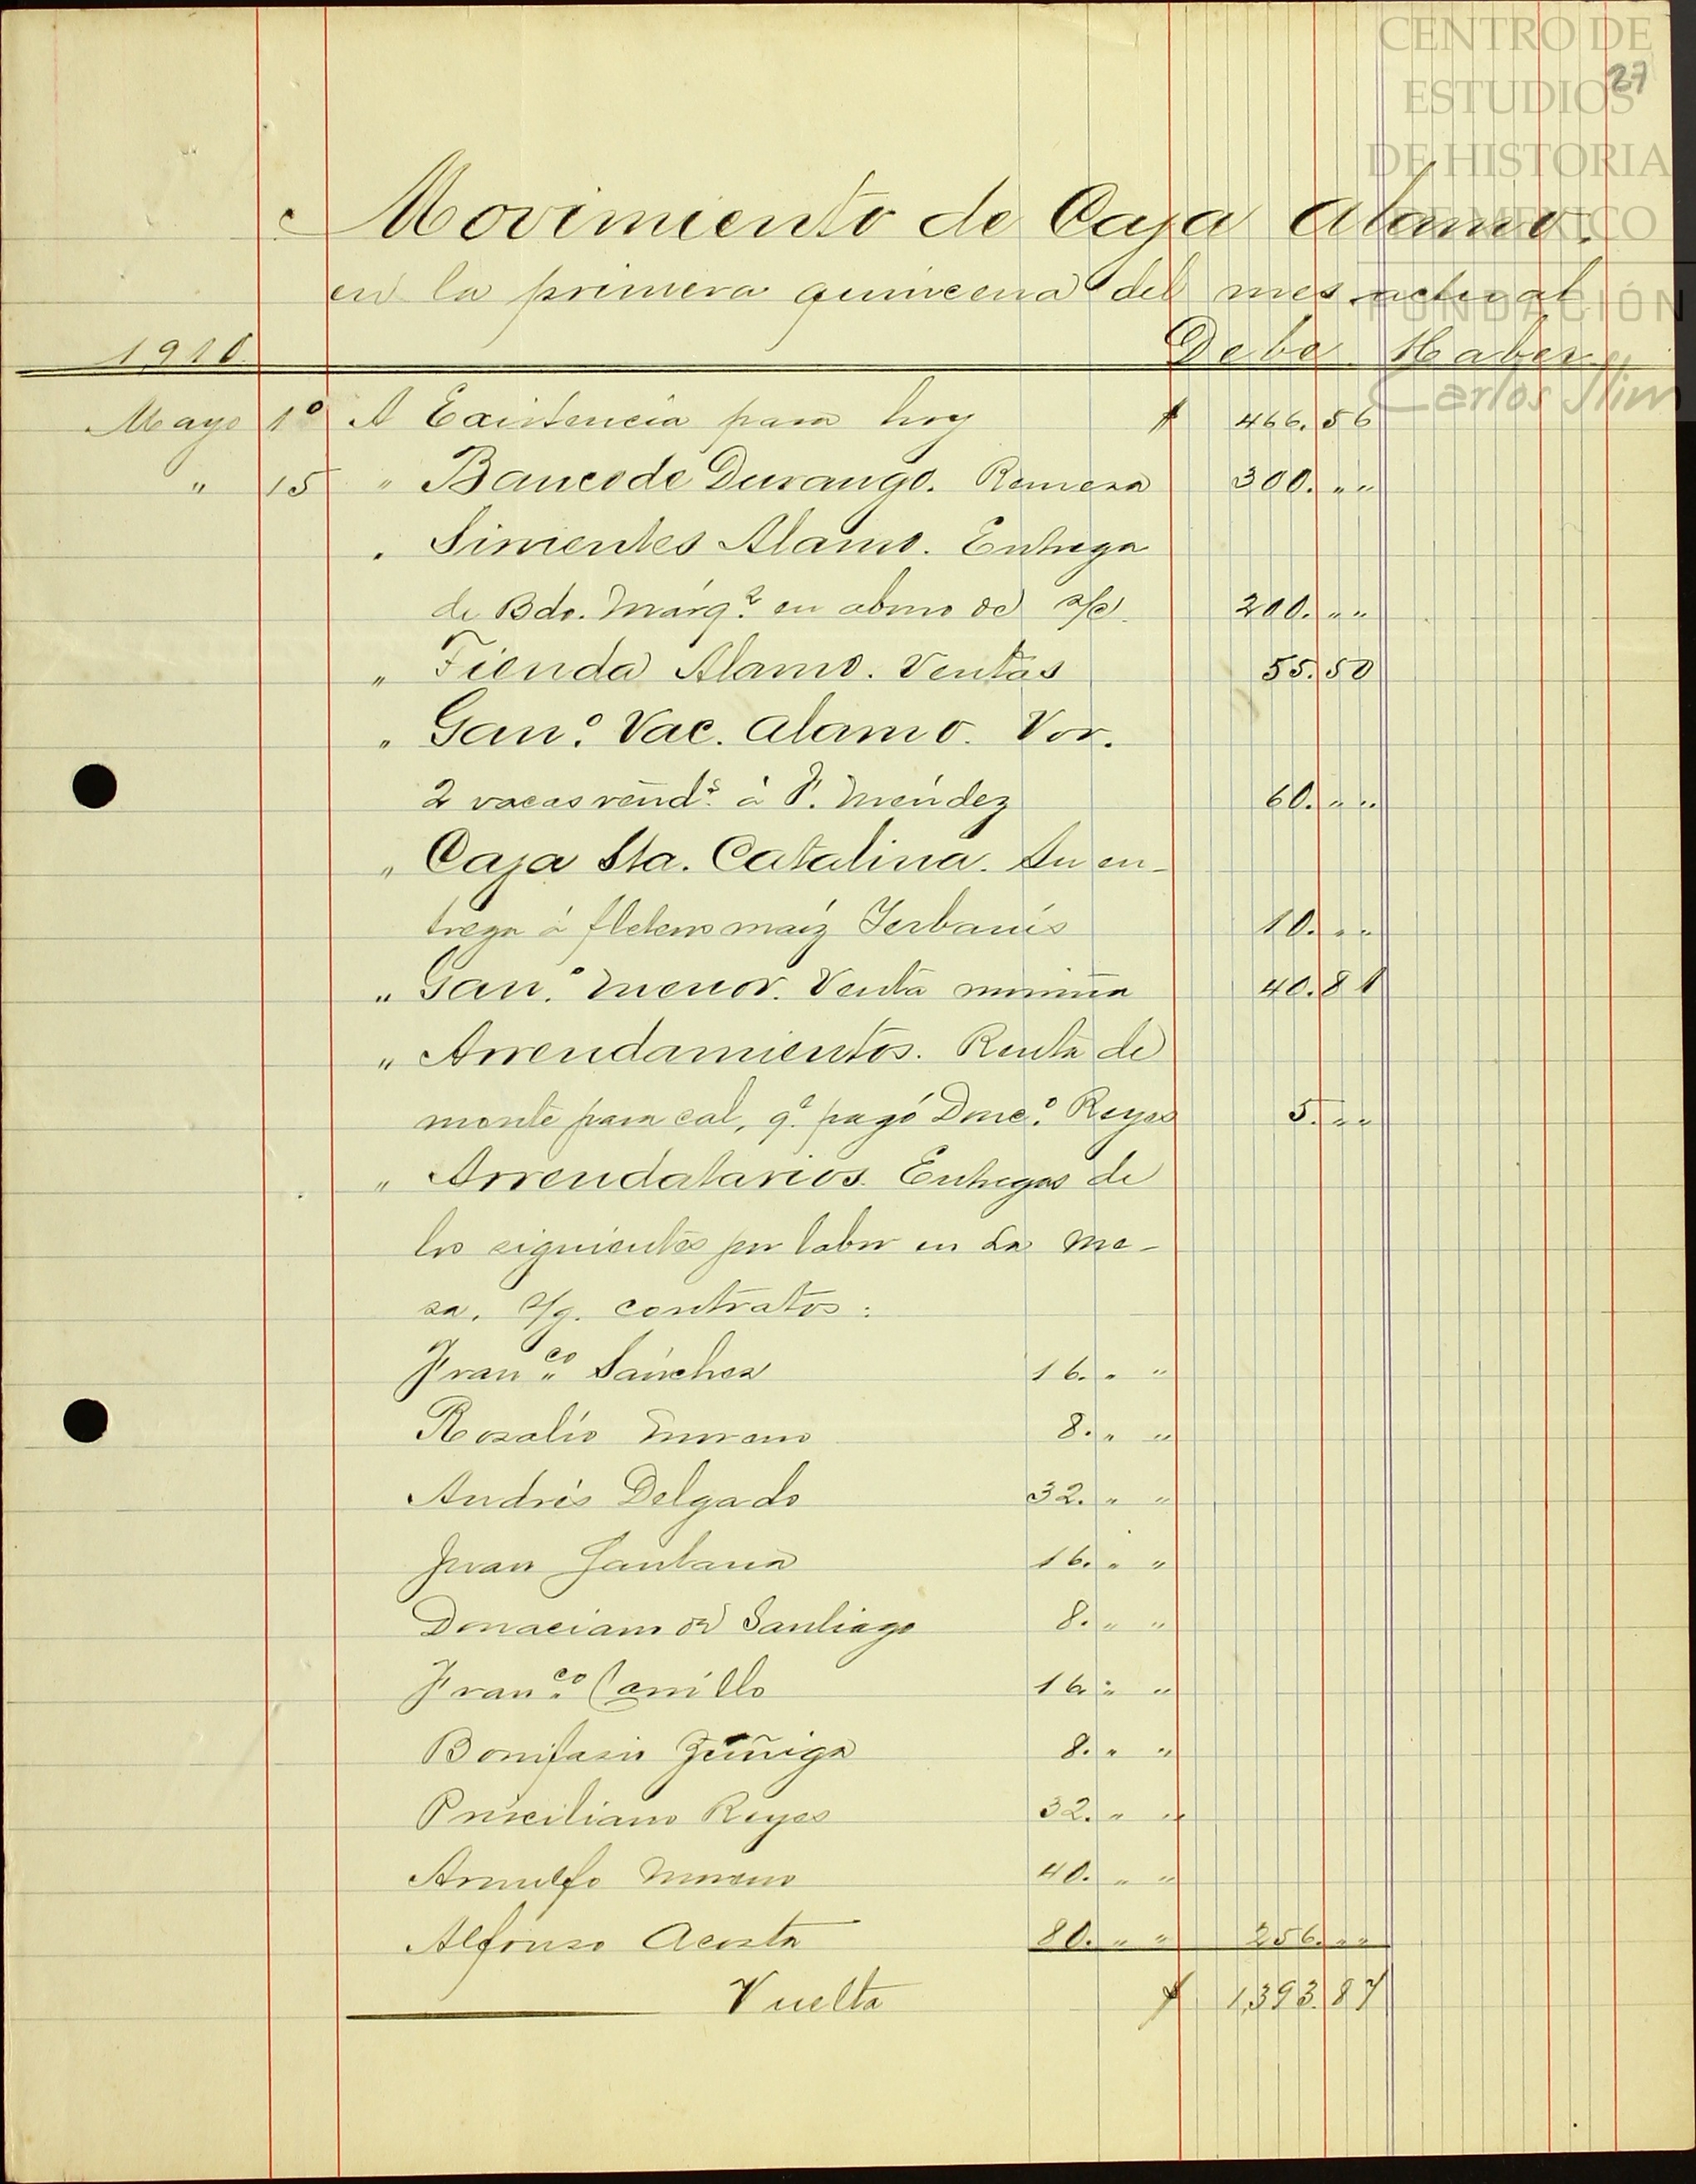 CENTRO DE
ESTUDIOS
DE HISTORIA
DE MÉXICO
FUNDACIÓN
Carlos Slim
27
Movimiento de Caja Alamo.
en la primera quincena del mes actual
1910. Debe Haber
Mayo 1º A Existencia para hoy $ 466.56
" 15 " Banco de Durango. Remesa 300. " "
" Simientes Alamo. Entrega
de Bdo. Márqz en abono de s/c. 200. " "
" Tienda Alamo. Ventas 55.50
" Gan.º Vac. Alamo. Vor.
2 vacas vend.s á F. Méndez 60. " "
" Caja Sta. Catalina. Su en-
trega á fletero maíz Yerbanís 10. " "
" Gan.º menor. Venta 40.81
" Arrendamientos. Renta de
monte para cal, q.e pagó Domc.º Reyes 5. " "
" Arrendatarios. Entregas de
los siguientes por labor en La Me-
sa, s/g. contratos:
Fran.co Sánchez 16. " "
Rosalío Moreno 8. " "
Andrés Delgado 32. " "
Juan Santana 16. " "
Donaciano de Santiago 8. " "
Fran.co Carrillo 16. " "
Bonifasio Zúñiga 8. " "
Prisciliano Reyes 32. " "
Arnulfo Moreno 40. " "
Alfonso Acosta 80. " " 256. " "
Vuelta $ 1,393.87